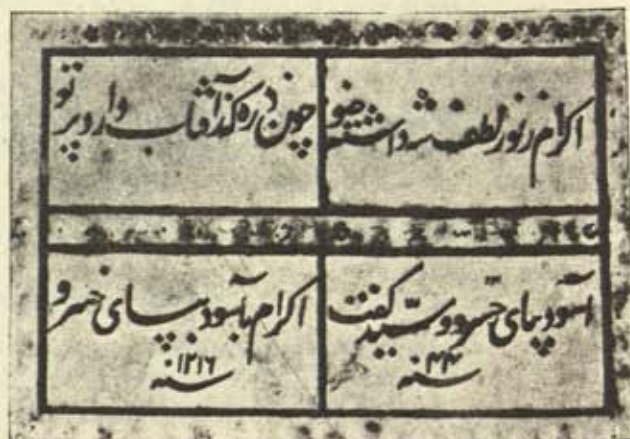 اکرام ز نور لطف شه داشته ضو
چون ذره که ز آفتاب دارد پرتو
آسود بپای خسرو و سید گفت
سنه ۴۴
اکرام بآسود بپای خسرو
سنه ۱۲۱۶